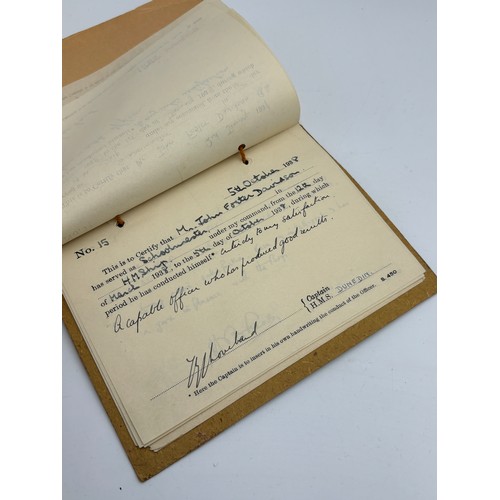 No. 15
5th October 1938
This is to Certify that Mr. John Foster Davidson
has served as Schoolmaster in
H.M. Ship under my command, from the 12th day
of March 1938, to the 5th day of October 1938, during which
period he has conducted himself* Entirely to my satisfaction
A capable officer who has produced good results.
Captain
H.M.S. DUNEDIN.
* Here the Captain is to insert in his own handwriting the conduct of the Officer. S. 450.